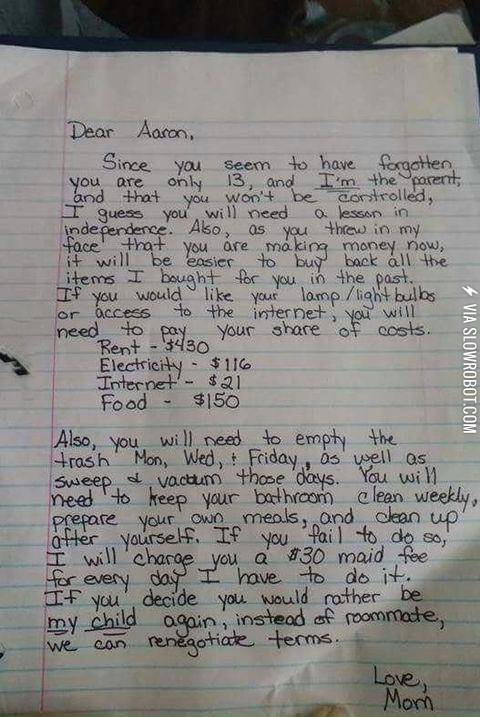 Dear Aaron,
Since you seem to have forgotten
you are only 13, and I'm the parent,
and that you won't be controlled,
I guess you will need a lesson in
independence. Also, as you threw in my
face that you are making money now,
it will be easier to buy back all the
items I bought for you in the past.
If you would like your lamp/lightbulbs
or access to the internet, you will
need to pay your share of costs.
Rent - $430
Electricity - $116
Internet - $21
Food - $150
Also, you will need to empty the
trash Mon, Wed, & Friday, as well as
sweep & vacuum those days. You will
need to keep your bathroom clean weekly,
prepare your own meals, and clean up
after yourself. If you fail to do so,
I will charge you a $30 maid fee
for every day I have to do it.
If you decide you would rather be
my child again, instead of roommate,
we can renegotiate terms.
Love,
Mom
VIA SLOWROBOT.COM